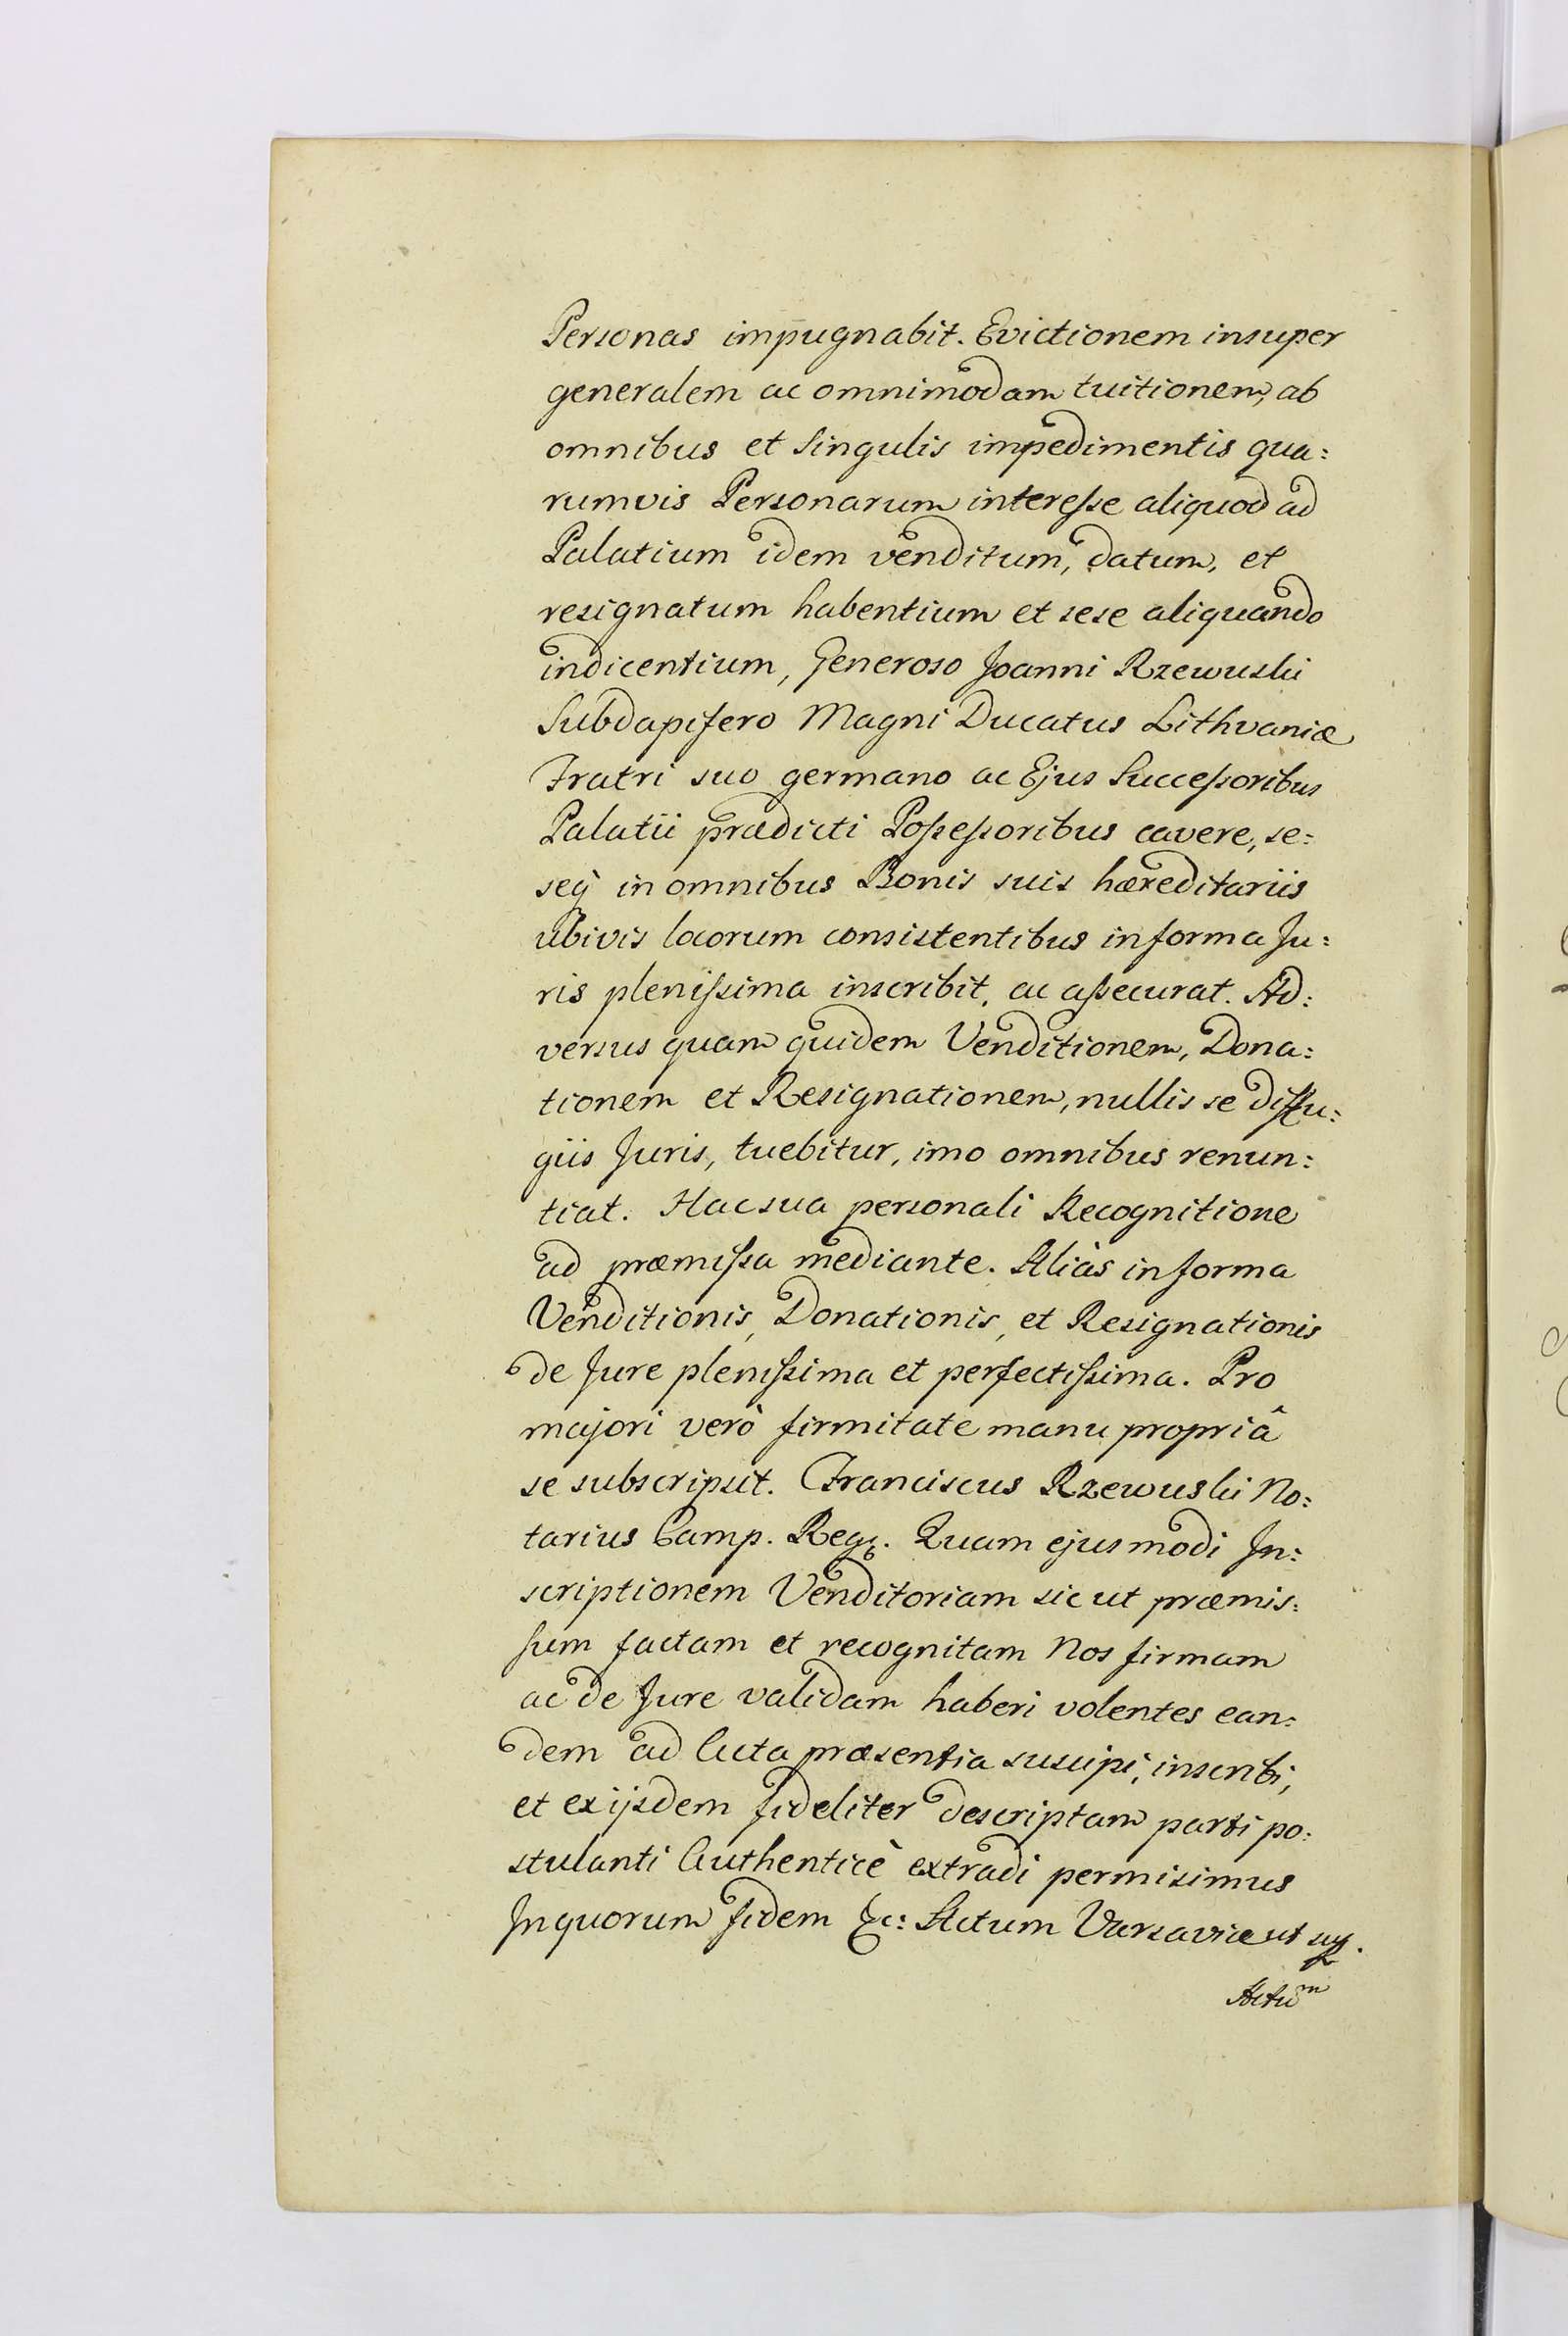 Personas impugnabit. Evictionem insuper
generalem ac omnimodam tuitionem, ab
omnibus et Singulis impedimentis qua:
rumvis Personarum interesse aliquod ad
Palatium idem venditum, datum, et
resignatum habentium et sese aliquando
indicentium, Generoso Joanni Rzewuski
Subdapifero Magni Ducatus Lithvaniæ
Fratri suo germano ac Ejus Successoribus
Palatii prædicti Possessoribus cavere, se:
seq̃ in omnibus Bonis suis hæreditariis
ubivis locorum consistentibus in forma Ju:
ris plenissima inscribit, ac assecurat. Ad:
versus quam quidem Venditionem, Dona:
tionem et Resignationem, nullis se diffu:
giis Juris, tuebitur, imo omnibus renun:
tiat. Hac sua personali Recognitione
ad præmissa mediante. Aliàs in forma
Venditionis, Donationis, et Resignationis
de Jure plenissima et perfectissima. Pro
majori verò firmitate manu propriâ
se subscripsit. Franciscus Rzewuski No:
tarius Camp. Reg. Quam ejusmodi In:
scriptionem Venditoriam sic ut præmis:
sum factam et recognitam Nos firmam
ac de Jure validam haberi volentes ean:
dem ad Acta præsentia suscipi, inscribi,
et ex ijsdem fideliter descriptam parti po:
stulanti Authenticè extradi permisimus
In quorum fidem &c: Actum Varsaviæ ut sup.
Actuͫ